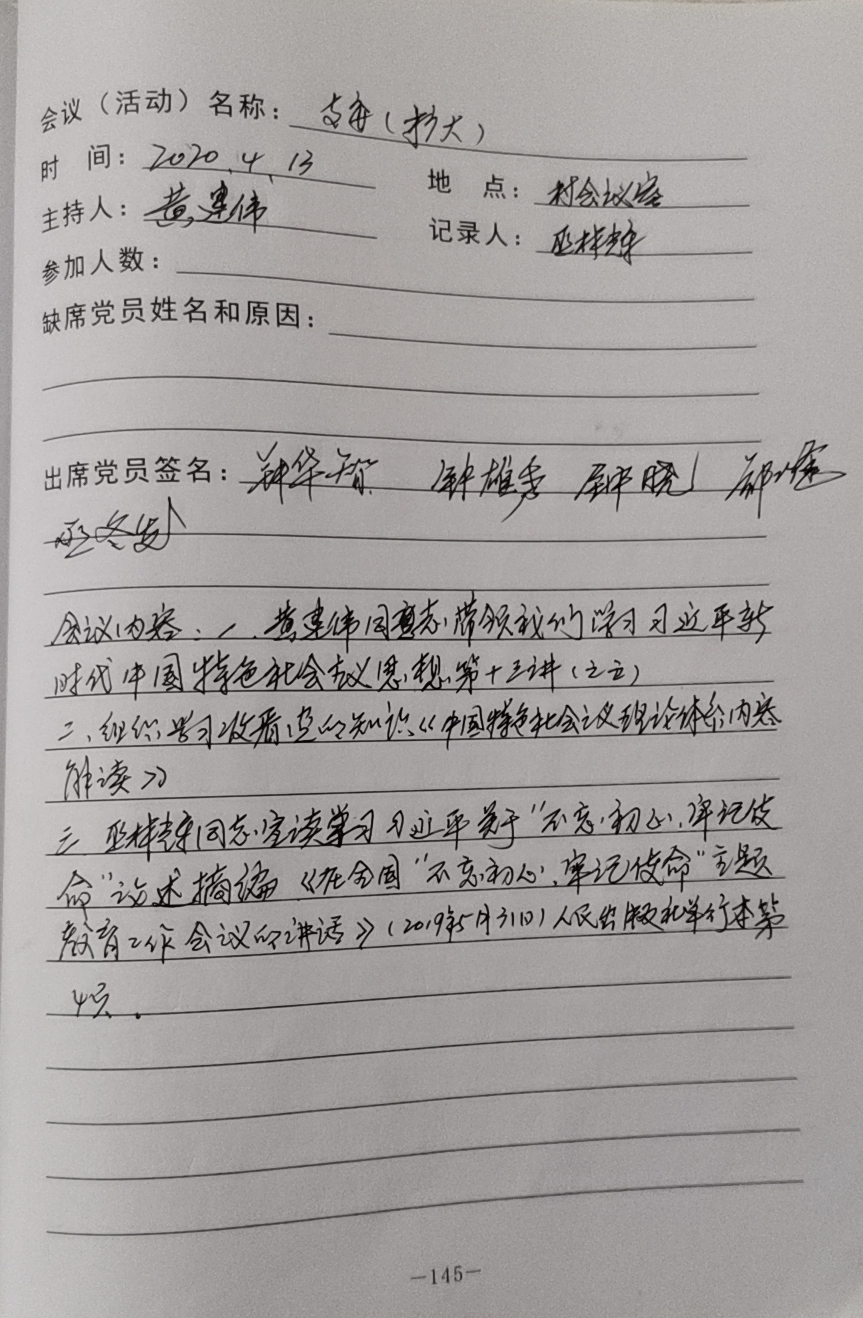 会议（活动）名称： 支委（扩大）
时 间： 2020.4.13 地 点： 村会议室
主持人： 黄建伟 记录人：
参加人数：
缺席党员姓名和原因：
出席党员签名： 钟雄秀 钟晓
会议内容：一、黄建伟同志带领我们学习习近平新
时代中国特色社会主义思想第十三讲（之五）
二、组织学习收看党的知识《中国特色社会主义理论体系内容
解读》
三、同志宣读学习习近平关于“不忘初心、牢记使
命”论述摘编《在全国“不忘初心、牢记使命”主题
教育工作会议的讲话》（2019年5月31日）人民出版社单行本第
4页.
—145—